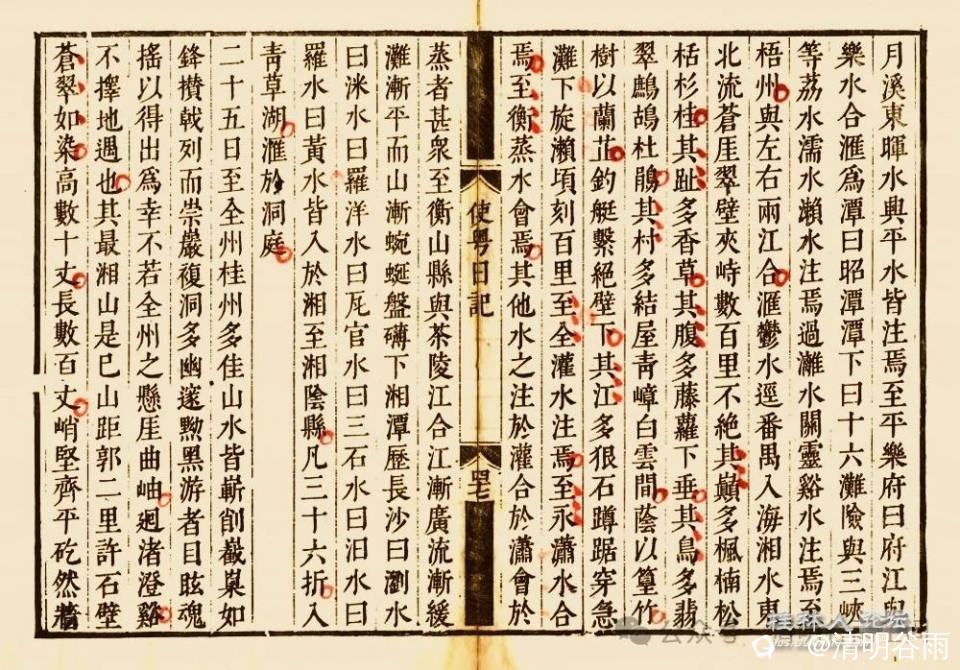 月溪東暉水興平水皆注焉至平樂府曰府江與
樂水合滙爲潭曰昭潭潭下曰十六灘險與三峽
等荔水濡水瀨水注焉過灕水關靈谿水注焉至
梧州與左右兩江合滙鬱水逕番禺入海湘水東
北流蒼厓翠壁夾峙數百里不絶其巔多楓楠松
栝杉桂其趾多香草其腹多藤蘿下垂其鳥多翡
翠鷓鴣杜鵑其村多結屋靑嶂白雲間蔭以篁竹
樹以蘭芷釣艇繫絕壁下其江多狠石蹲踞穿急
灘下旋瀨頃刻百里至全灌水注焉至永瀟水合
焉至衡蒸水會焉其他水之注於灌合於瀟會於
使粤日記
蒸者甚衆至衡山縣與茶陵江合江漸廣流漸緩
灘漸平而山漸蜿蜒盤礴下湘潭歷長沙曰瀏水
曰洣水曰羅洋水曰瓦官水曰三石水曰汨水曰
羅水曰黃水皆入於湘至湘陰縣凡三十六折入
靑草湖滙於洞庭
二十五日至全州桂州多佳山水皆嶄削巀如
鋒攅戟列而崇巖複洞多幽邃黝黑游者目眩魂
搖以得出爲幸不若全州之懸厓曲岫廻渚澄谿
不擇地遇也其最湘山是巳山距郭二里許石壁
蒼翠如染高數十丈長數百丈峭堅齊平矻然牆
桂林人论坛
公众号
@清明谷雨